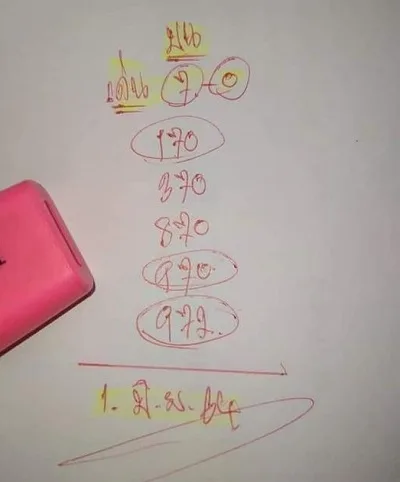 บน
เด่น 7-0
170
370
870
970
972
1. มิ.ย. 64